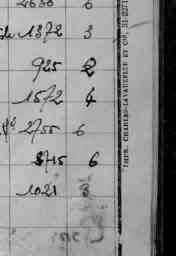 4636 6
1372 3
925 2
1572 4
2755 6
3715 6
1021 3
IMPR. CHARLES-LAVAUZELLE ET Cie,